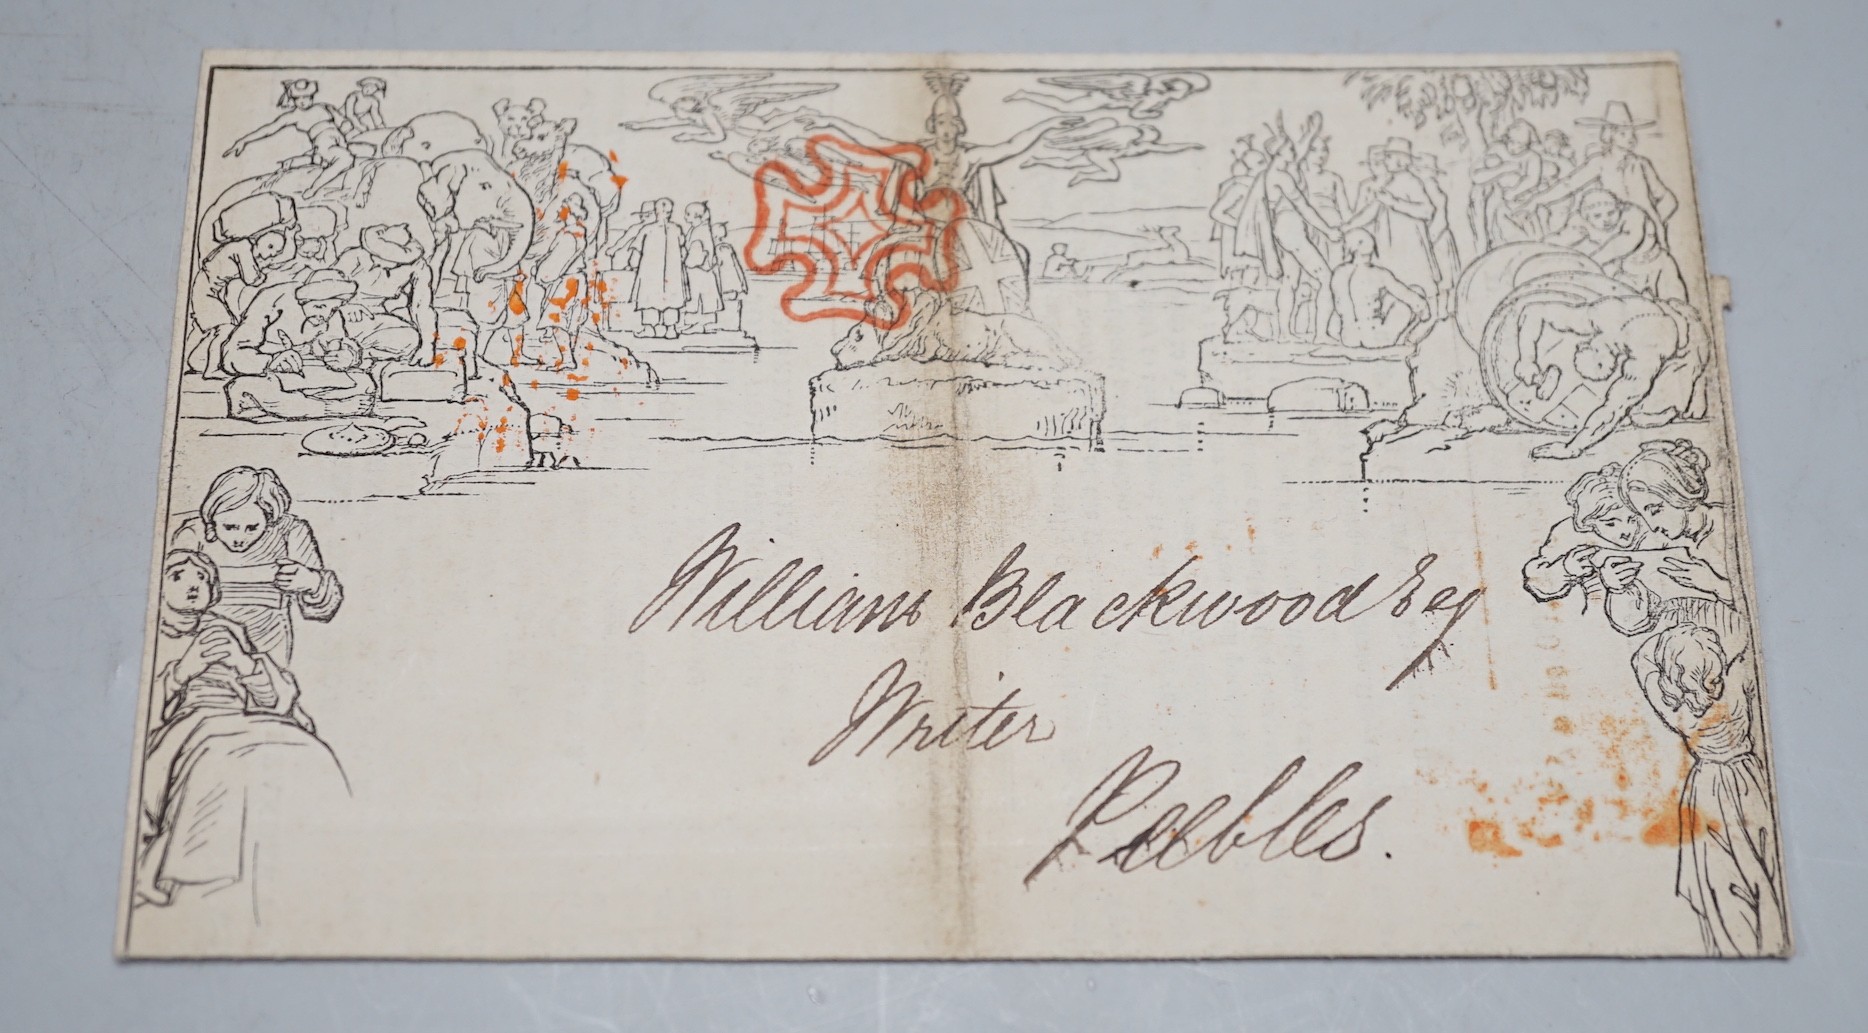 William Blackwood Esq
Writer
Peebles.